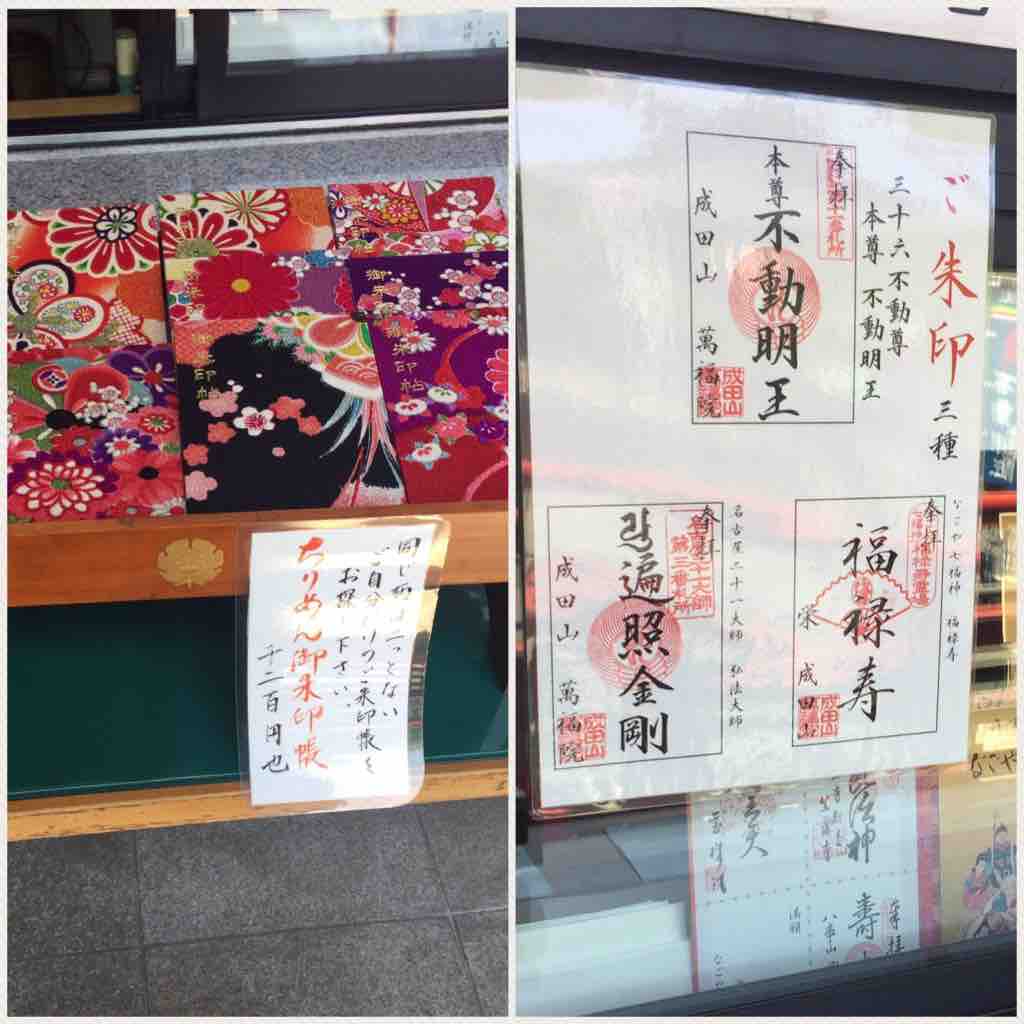 御朱印帖
同じ柄は二つとない
ご自分だけのご朱印帳を
お探し下さい
ちりめん御朱印帳
千二百円也
ご朱印 三種
三十六不動尊
本尊 不動明王
奉拝
本尊不動明王
成田山 萬福院
成田山
なごや七福神 福禄寿
奉拝
福禄寿
栄 成田山
成田山
名古屋二十一大師 弘法大師
奉拝
名古屋二十一大師
第三番札所
遍照金剛
成田山 萬福院
成田山
奉拝
寿
八事山
なごや